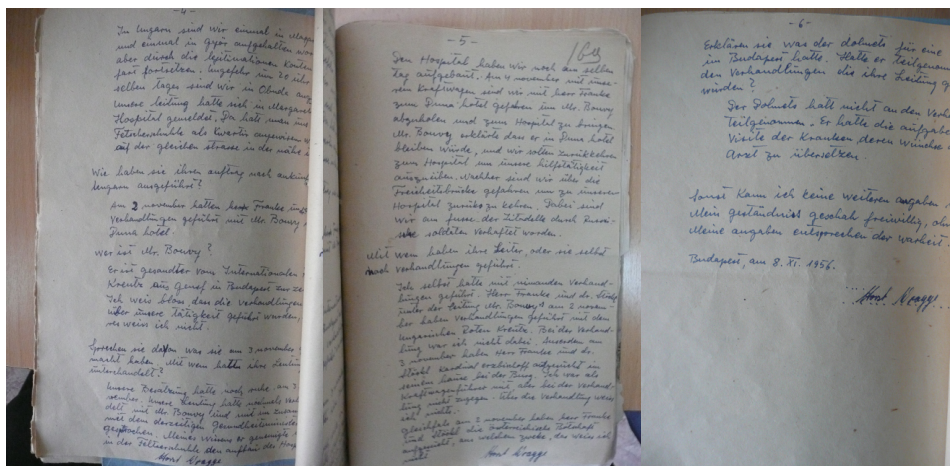 -4-
In Ungarn sind wir einmal in
und einmal in Györ aufgehalten
aber durch die legitimationen
fart fortsetzen. Ungefehr um 20
selben tages sind wir in Obuda
Unsere leitung hatte sich in Margaret
Hospital gemeldet. Da hatt man uns
als Kwartir angewisen
auf der gleichen strasse in der nähe
Wie haben sie ihren auftrag nach
Ungarn ausgeführt?
Am 2 november hatten herr Franke,
Verhandlungen geführt mit Mr. Bouvy,
Duna hotel.
Wer ist Mr. Bouvy?
Er ist gesandter vom Internationalen
Kreutz aus Genf in Budapest zur
Ich weis blos dass die Verhandlungen
über unsere tätigkeit geführt wurden,
es weis ich nicht.
Sprechen sie davon was sie am 3 november
macht haben. Mit wem hatte ihre
unterhandelt?
Unsere Besatzung hatte noch ruhe am 3
vember. Unsere leitung hatte nochmals
delt mit Mr. Bouvy und mit
mit dem derzeitigen
gesprochen. Meines wissens er
in der den aufbau des
Horst Kragge
-5-
Den Hospital haben wir noch am selben
tag aufgebaut. Am 4 november mit unse-
ren Kraftwagen sind wir mit herr Franke
zum Duna hotel gefahren um Mr. Bouvy
abzuholen und zum Hospital zu bringen
Mr. Bouvy erklärte dass er in Duna hotel
bleiben würde, und wir solten zurückkehren
zum Hospital um unsere hilfstätigkeit
auszuüben. Nachher sind wir über die
Freiheitsbrücke gefahren um zu unseren
Hospital zurück zu kehren. Dabei sind
wir am fusse der Zitadelle durch Russi-
sche soldaten verhaftet worden.
Mit wem haben ihre Leiter, oder sie selbst
noch verhandlungen geführt.
Ich selbst hatte mit niemanden verhand-
lungen geführt. Herr Franke und dr.
unter der leitung Mr. Bouvy am 2 novem-
ber haben verhandlungen geführt mit den
Ungarischen Roten Kreutz. Bei der Verhand-
lung war ich nicht dabei. Ausserdem am
3 november haben Herr Franke und dr.
Kardinal erzbischoff aufgesucht in
seinem hause bei der Burg. Ich war als
Kraftwagenführer mit aber bei der Verhand-
lung nicht zugegen. Über die Verhandlung weis
ich nichts.
Gleichfals am 2 november haben herr Franke
und die österreichische Botschaft
aufgesucht, aus welchem zwecke, das weis ich
nicht.
Horst Kragge
-6-
Erklären sie was der dolmets für eine
in Budapest hatte. Hatte er teilgenom
den Verhandlungen die ihre Leitung
wurden?
Der Dolmets hatt nicht an den Verh
teilgenommen. Er hatte die aufgabe
Visite der Kranken deren Wünsche
Arzt zu übersetzen.
Sonst Kann ich keine weiteren angaben
Mein geständniss geschah freiwillig,
Meine angaben entsprechen der warheit
Budapest, am 8. XI. 1956.
Horst Kragge